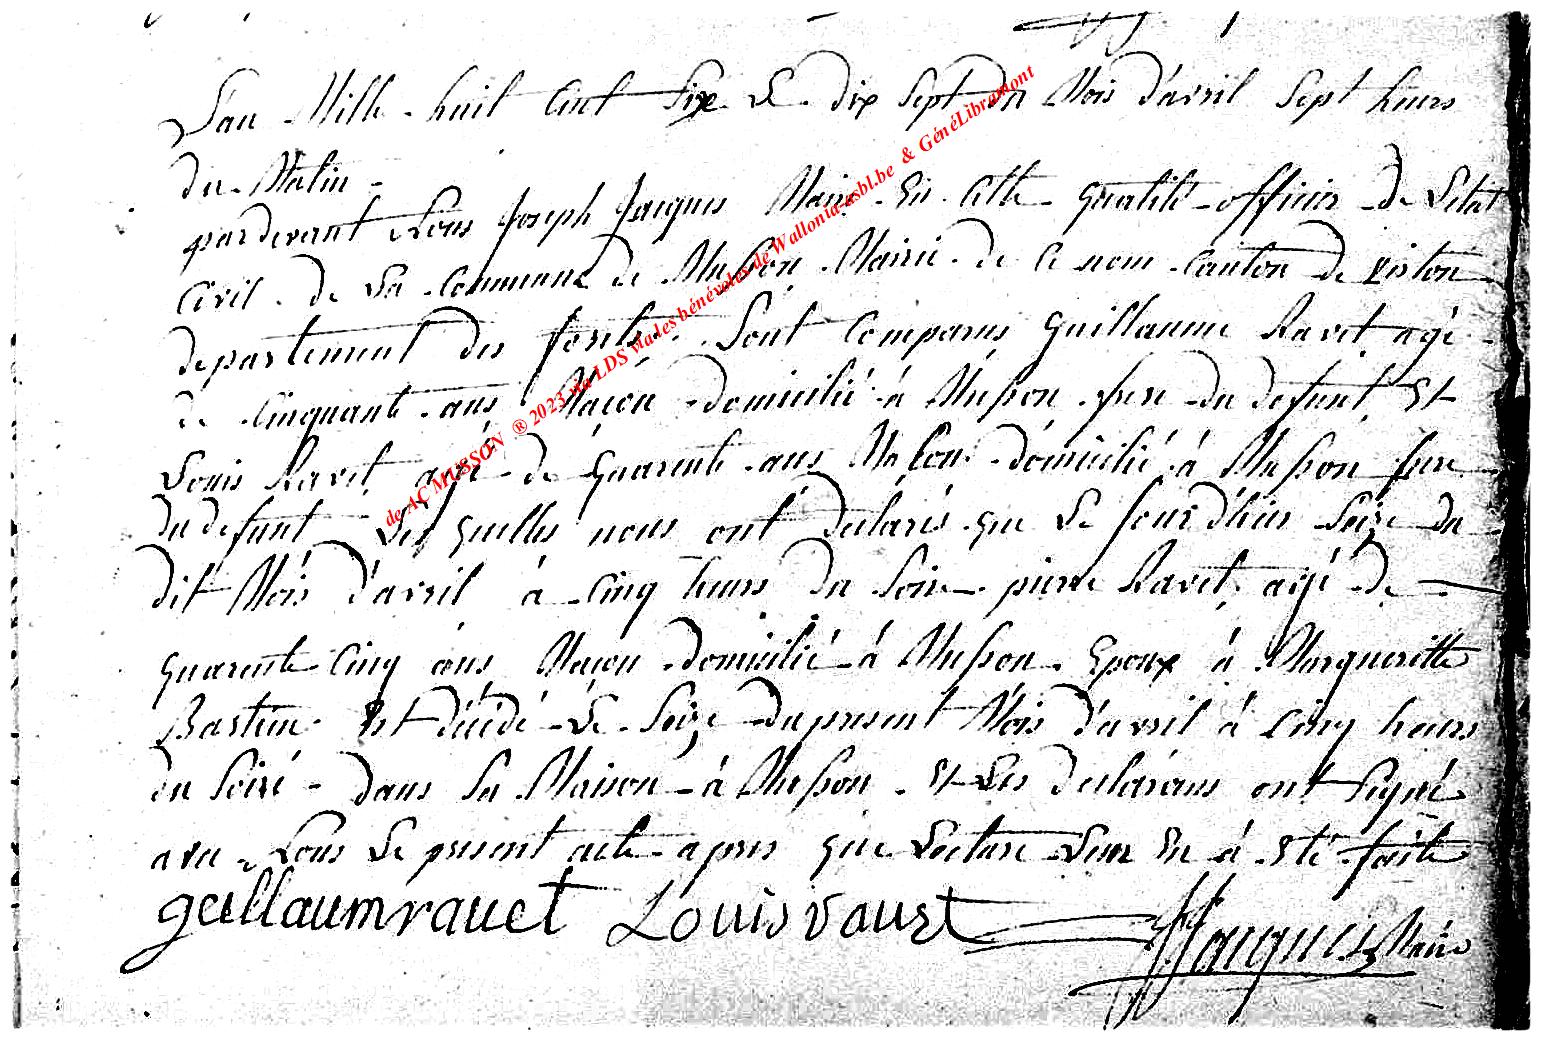 L'an Mille huit Cent Six Le dix Sept du Mois d'avril Sept heurs
du Matin
pardevant Nous Joseph Jacques Maire En Cette qualité officier de L'etat
Civil de La Commune de Musson Mairie de Ce nom Canton de Virton
departement des forets Sont Comparus Guillaume Ravet agé
de Cinquante ans Macon domicilié à Musson frere du defunt Et
Louis Ravet agé de quarente ans Macon domicilié à Musson frere
du defunt Les quelles nous ont declarés que Le Jour d'hier Seize du
dit Mois d'avril à Cinq heurs du Soire pierre Ravet, agé de
quarente Cinq ans Macon domicilié à Musson Epoux à Margueritte
Bastin Est décédé Le Seize du present Mois d'avril à Cinq heurs
du Soiré dans Sa Maison à Musson Et Les declarans ont Signé
avec Nous Le present acte apres que Lecture Leur En à eté faite
guillaumravet Louis ravet JJacques Maire
de AC MUSSON ® 2023 via LDS via les bénévoles de Wallonia-asbl.be & GénéLibramont